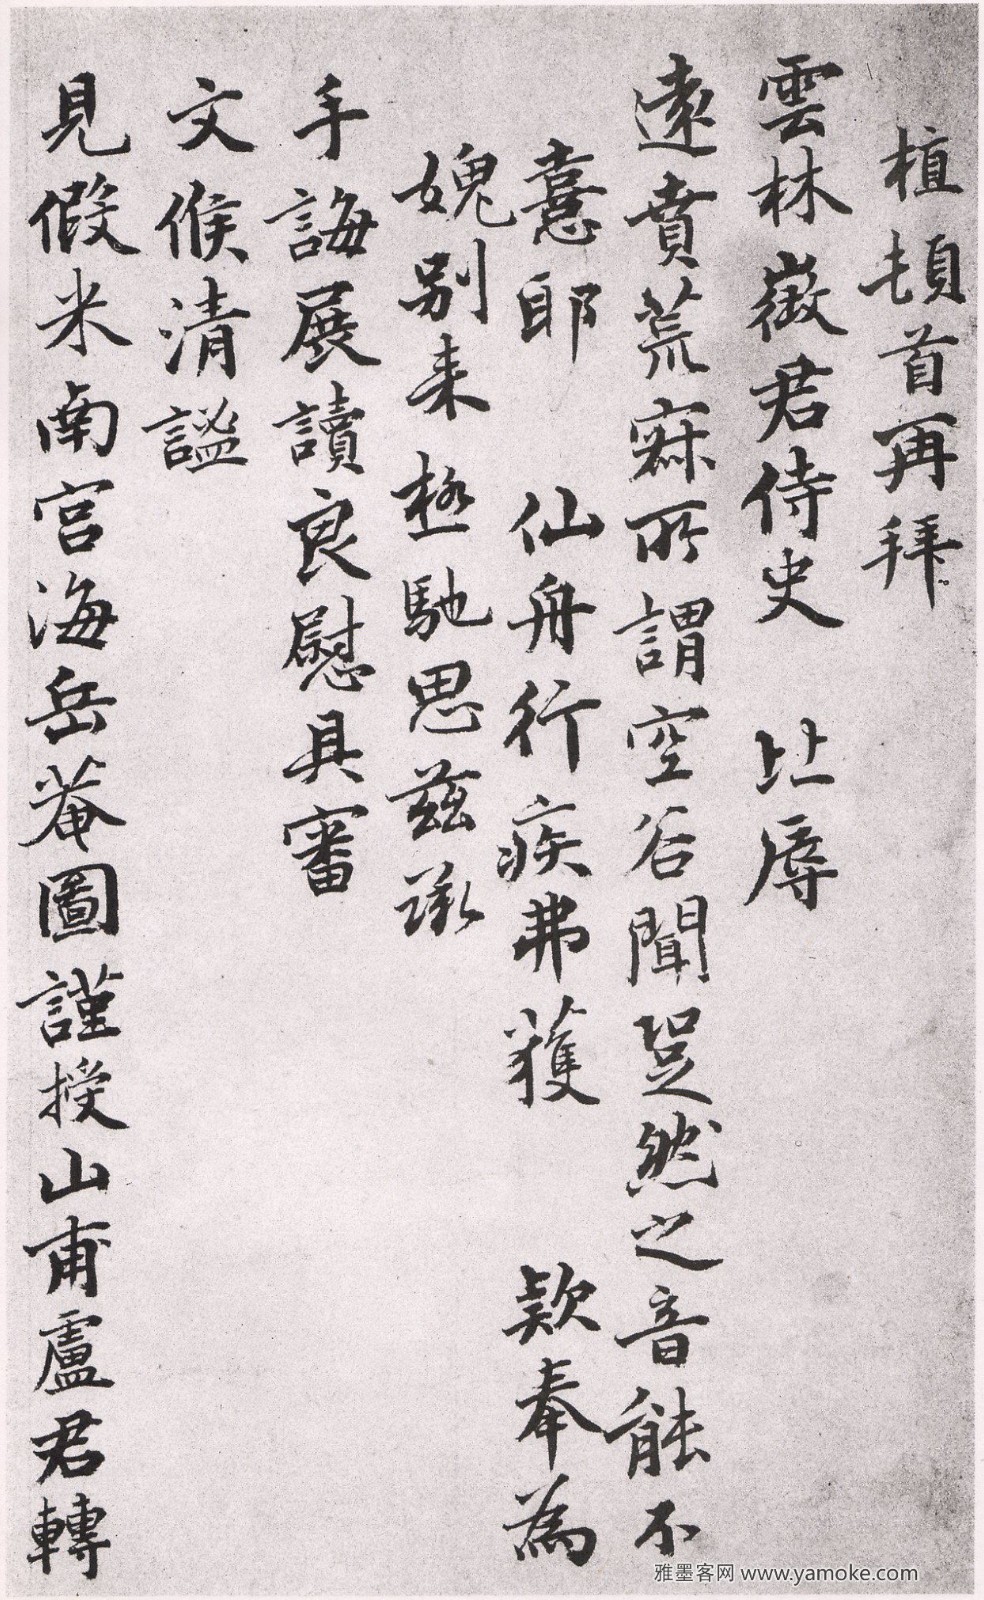 植頓首再拜
雲林徵君侍史 比辱
遠賁荒寂所謂空谷聞跫然之音能不
憙耶 仙舟行疾弗獲 款奉為
媿别来極馳思茲承
手誨展讀良慰具審
文候清謐
見假米南宫海岳菴圖謹授山甫盧君轉
雅墨客网 www.yamoke.com